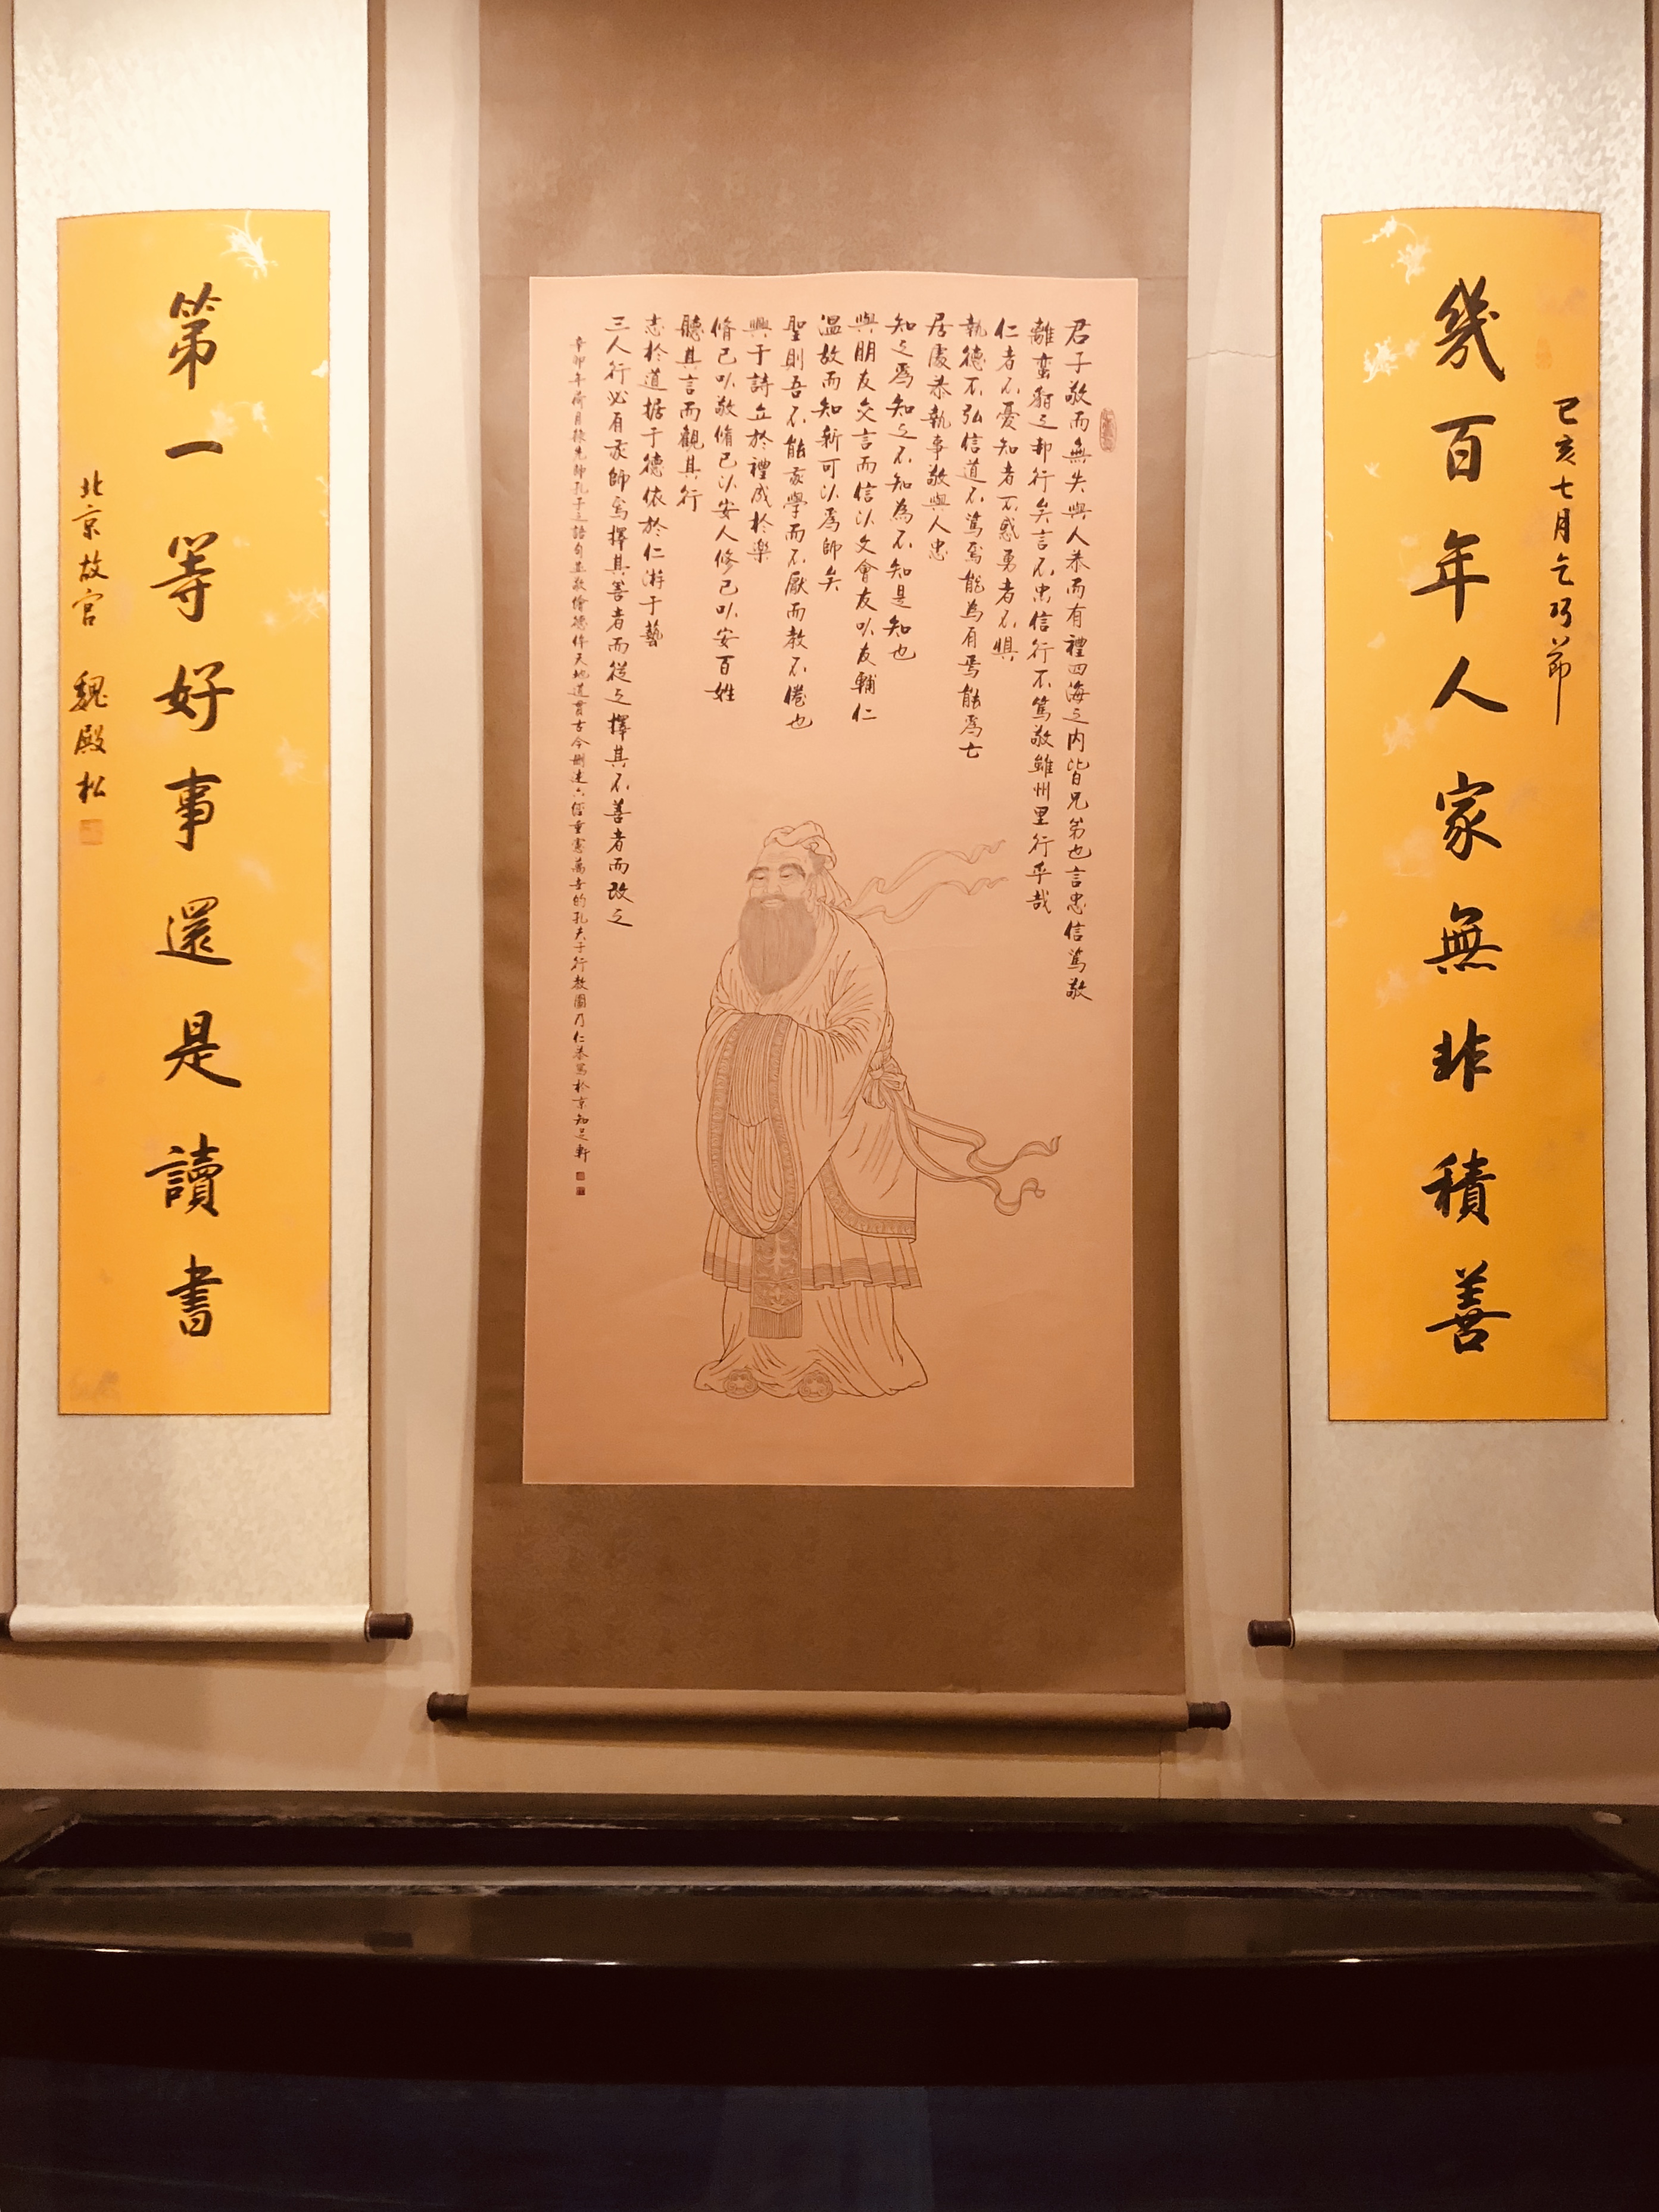 己亥七月乞巧節
幾百年人家無非積善
君子敬而無失與人恭而有禮四海之内皆兄弟也言忠信篤敬
雖蠻貊之邦行矣言不忠信行不篤敬雖州里行乎哉
仁者不憂知者不惑勇者不懼
執德不弘信道不篤焉能為有焉能爲亡
居處恭執事敬與人忠
知之爲知之不知為不知是知也
與朋友交言而信以文會友以友輔仁
温故而知新可以爲師矣
聖則吾不能我學而不厭而教不倦也
興于詩立於禮成於樂
脩己以敬脩己以安人修己以安百姓
聽其言而觀其行
志於道据于德依於仁游于藝
三人行必有我師焉擇其善者而從之擇其不善者而改之
辛卯年荷月録先師孔子之語句並敬繪德侔天地道貫古今刪述六經垂憲萬世的孔夫子行教圖乃仁恭寫於京知足軒
第一等好事還是讀書
北京故宮 魏殿松